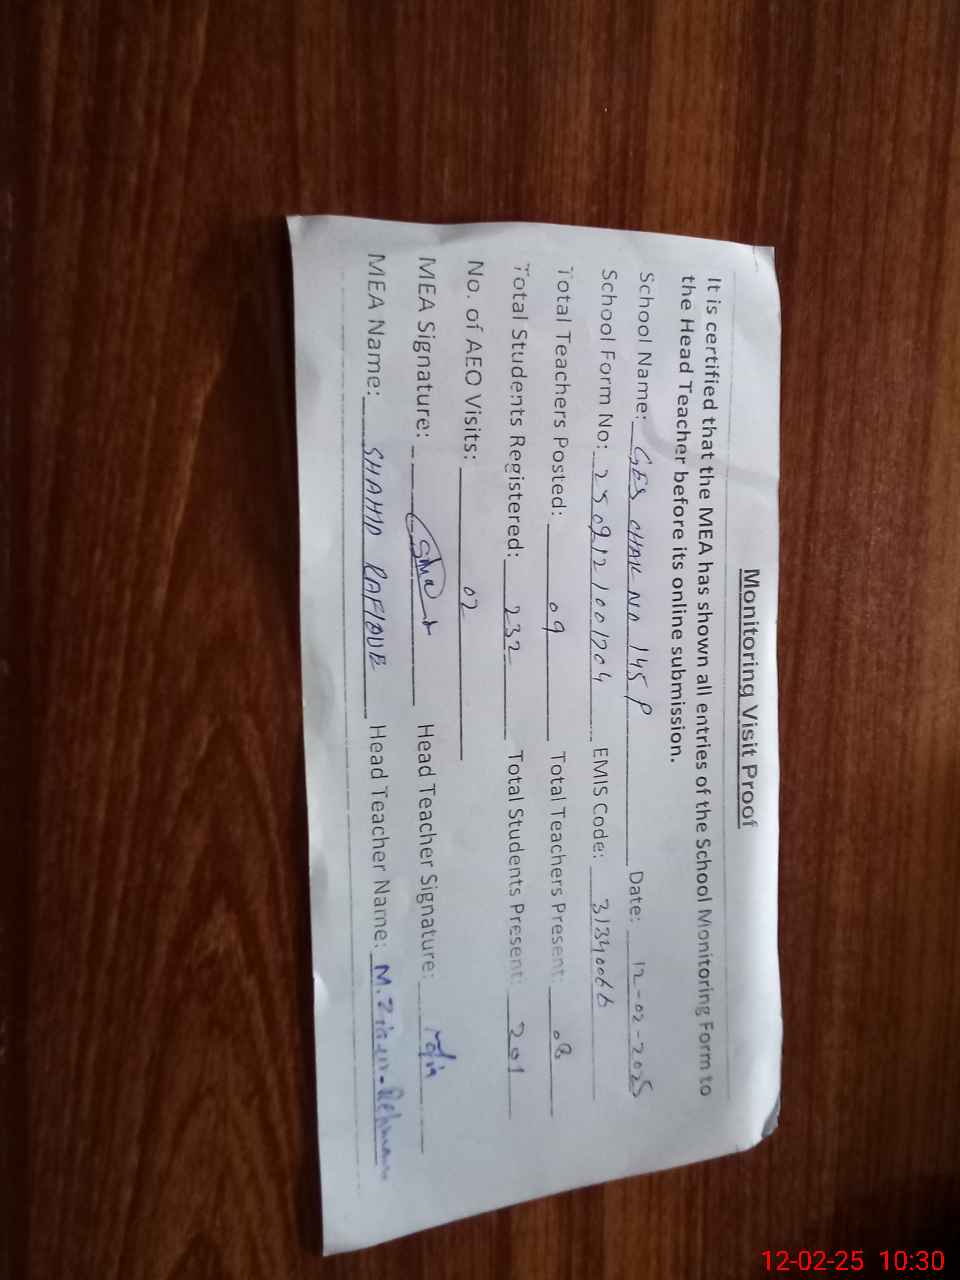 Monitoring Visit Proof
It is certified that the MEA has shown all entries of the School Monitoring Form to
the Head Teacher before its online submission.
School Name: GES CHAK NO 145 P Date: 12-02-2025
School Form No: 2502121001204 EMIS Code: 31340066
Total Teachers Posted: 09 Total Teachers Present: 08
Total Students Registered: 232 Total Students Present: 201
No. of AEO Visits: 02
MEA Signature: Head Teacher Signature:
MEA Name: SHAHID RAFIQUE Head Teacher Name: M. Zia-ur-Rehman
12-02-25 10:30